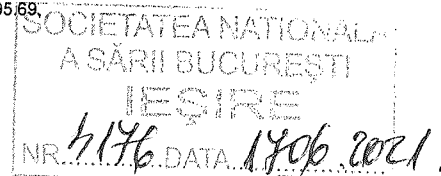 95,69,
SOCIETATEA NAȚIONALĂ
A SĂRII BUCUREȘTI
IEȘIRE
NR. 4176 DATA 17.06.2021.